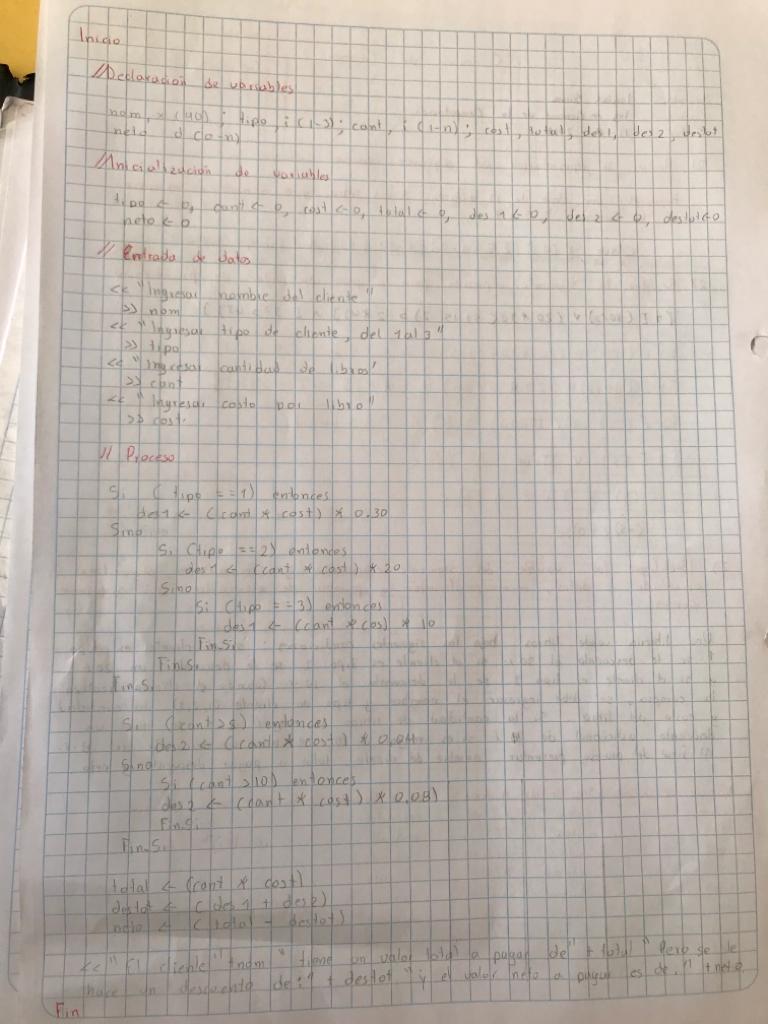 Inicio
//Declaracion de variables
nom, x (40) ; tipo, i (1-3); cant, i (1-n) ; cost, total, des1, des2, destot
neto d (0-n)
//Inicialización de variables
tipo <- 0, cant <- 0, cost <- 0, total <- 0, des 1 <- 0, des 2 <- 0, destot <- 0
neto <- 0
// Entrada de datos
<< "Ingresar nombre del cliente"
>> nom
<< "Ingresar tipo de cliente, del 1 al 3"
>> tipo
<< "Ingresar cantidad de libros"
>> cant
<< "Ingresar costo por libro"
>> cost.
// Proceso
Si (tipo == 1) entonces
des1 <- (cant * cost) * 0.30
Sino
Si (tipo == 2) entonces
des1 <- (cant * cost) * 20
Sino
Si (tipo == 3) entonces
des1 <- (cant * cos) * 10
Fin.Si
Fin.Si
Fin.Si
Si (cant > 5) entonces
des2 <- (cant * cost) * 0.04
Sino
Si (cant > 10) entonces
des2 <- (cant * cost) * 0.08)
Fin.Si
Fin.Si
total <- (cant * cost)
destot <- (des1 + des2)
neto <- (total - destot)
<< "El cliente" + nom " tiene un valor total a pagar de" + total " Pero se le
hace un descuento de:" + destot "y el valor neto a pagar es de." + neto
Fin